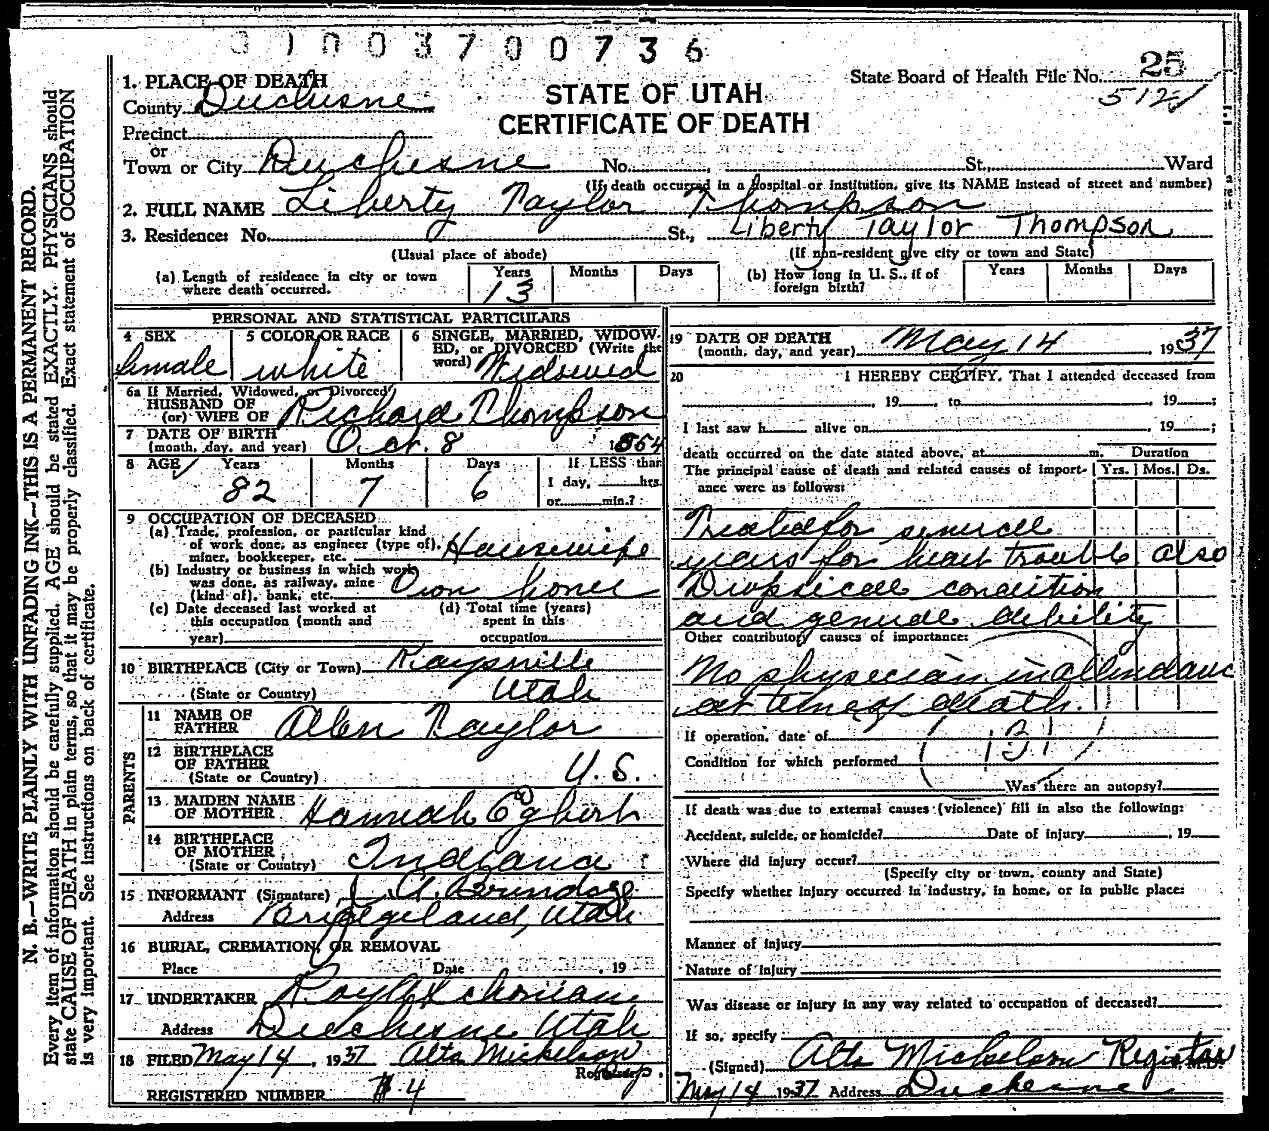 3 1 0 0 3 7 0 0 7 3 6
State Board of Health File No. 25
512
STATE OF UTAH
CERTIFICATE OF DEATH
1. PLACE OF DEATH
County Duchesne
Precinct
or
Town or City Duchesne No. St., Ward
(If death occurred in a hospital or institution, give its NAME instead of street and number)
2. FULL NAME Liberty Taylor Thompson
3. Residence: No. St., Liberty Taylor Thompson
(Usual place of abode) (If non-resident give city or town and State)
(a) Length of residence in city or town where death occurred. Years 13 Months Days
(b) How long in U. S., if of foreign birth? Years Months Days
PERSONAL AND STATISTICAL PARTICULARS
4 SEX female
5 COLOR OR RACE white
6 SINGLE, MARRIED, WIDOWED, or DIVORCED (Write the word) Widowed
6a If Married, Widowed, or Divorced
HUSBAND OF
(or) WIFE OF Richard Thompson
7 DATE OF BIRTH
(month, day, and year) Oct. 8 1854
8 AGE Years 82 Months 7 Days 6
If LESS than
1 day, hrs.
or min.?
9 OCCUPATION OF DECEASED
(a) Trade, profession, or particular kind
of work done, as engineer (type of),
miner, bookkeeper, etc. Housewife
(b) Industry or business in which work
was done, as railway, mine
(kind of), bank, etc. Own home
(c) Date deceased last worked at
this occupation (month and
year)
(d) Total time (years)
spent in this
occupation
10 BIRTHPLACE (City or Town) Kaysville
(State or Country) Utah
PARENTS
11 NAME OF
FATHER Allen Taylor
12 BIRTHPLACE
OF FATHER
(State or Country) U. S.
13 MAIDEN NAME
OF MOTHER Hannah Egbert
14 BIRTHPLACE
OF MOTHER
(State or Country) Indiana
15 INFORMANT (Signature) J. A. Brundage
Address Bridgeland, Utah
16 BURIAL, CREMATION, OR REMOVAL
Place Date , 19
17 UNDERTAKER
Address Duchesne Utah
18 FILED May 14, 1937 Alta Mickelson
Registrar
REGISTERED NUMBER # 4
19 DATE OF DEATH
(month, day, and year) May 14, 1937
20 I HEREBY CERTIFY, That I attended deceased from
, 19 , to , 19 ;
I last saw h alive on , 19 ;
death occurred on the date stated above, at m. Duration
The principal cause of death and related causes of importance were as follows: Yrs. Mos. Ds.
Treated for several
years for heart trouble also
Dropsical condition
and general debility
Other contributory causes of importance:
No physician in attendance
at time of death.
If operation, date of
131
Condition for which performed
Was there an autopsy?
If death was due to external causes (violence) fill in also the following:
Accident, suicide, or homicide? Date of injury , 19
Where did injury occur?
(Specify city or town, county and State)
Specify whether injury occurred in industry, in home, or in public place:
Manner of injury
Nature of injury
Was disease or injury in any way related to occupation of deceased?
If so, specify
(Signed) Alta Mickelson Registrar M.D.
May 14 1937 Address Duchesne
N. B.—WRITE PLAINLY WITH UNFADING INK—THIS IS A PERMANENT RECORD.
Every item of information should be carefully supplied. AGE should be stated EXACTLY. PHYSICIANS should
state CAUSE OF DEATH in plain terms, so that it may be properly classified. Exact statement of OCCUPATION
is very important. See instructions on back of certificate.